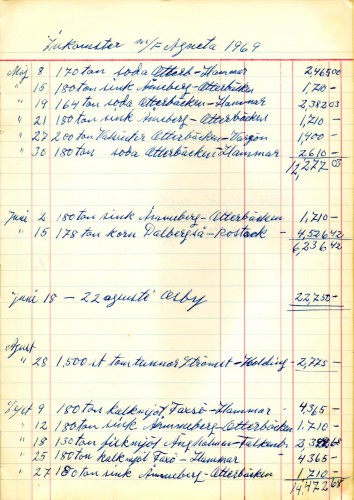 Inkomster m/s Agneta 1969
Maj 8 170 ton soda Otterb-Hammar 2,465 00
" 15 180 ton sink Åmeberg-Otterbäcken 1,710 -
" 19 164 ton soda Otterbäcken-Hammar 2,382 03
" 21 180 ton sink Åmeberg-Otterbäcken 1,710 -
" 27 200 ton Otterbäcken-Vargön 1,400 -
" 30 180 ton soda Otterbäcken-Hammar 2610 -
12,277 03
Juni 2 180 ton sink Åmmeberg-Otterbäcken 1,710 -
" 15 178 ton korn Dalbergså-Rostock - 4,526 42
6,236 42
Juni 18 - 22 augusti Osby 22,750 -
Agust
" 28 1,500 st tomtunnor Strömst-Kolding - 2,775 -
Sept 9 180 ton kalkmjöl Faxö-Hammar - 4365 -
" 12 180 ton sink Åmmeberg-Otterbäcken 1,710 -
" 18 130 ton fiskmjöl Ängholmen-Falkenb.
" 25 180 ton kalkmjöl Faxö-Hammar 4365 -
" 27 180 ton sink Åmmeberg-Otterbäcken 1,710 -
14,472 68